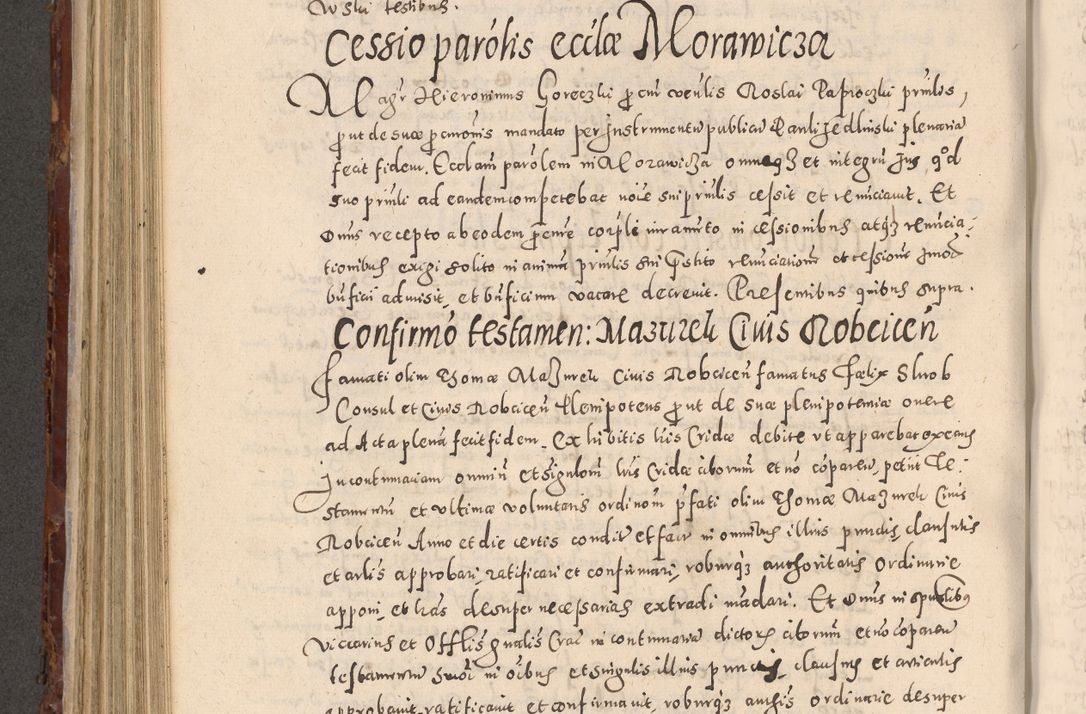 Wski testibus.
Cessio parolis ecclae Morawicza
Magr Hieronimus Goreczki pcur venlis Roslai Paproczki prnlis,
put de suae pcuronis mandato per Instrumentu publicu Pauli Jedlinski plenaria
fecit fidem. Ecclam parolem in Morawicza omneqz et integru Jus, qod
suo prnli ad eandem competebat noie sui prnlis cessit et renuciauit. Et
Dnus recepto ab eodem pcure corpli iuramto in cessionibus atqz renucia-
tionibus exigi solito in anima prnlis sui pstito renuciatione et cessione
buficii admisit, et buficium vacare decreuit. Presentibus quibus supra.
Confirmo testamen: Mazurek Ciuis Robcicen
Famati olim Thomae Mazurek Ciuis Robcicen famatus Faelix Slurob
Consul et Ciuis Robcicen Plenipotens put de suae plenipotentiae onere
ad Acta plena fecit fidem. Exhibitis lris Cridae debite vt apparebat executis
In contumaciam omniu et Singuloru lris Cridae citorum et no coparen, petiit Te-
stamentu et vltimae voluntatis ordinem pfati olim Thomae Mazurek Ciuis
Robcicen Anno et die certis conditu et factu in omnibus illius punctis, clausulis
et arlis approbari, ratificari et confirmari, roburqz authoritatis Ordinarie
apponi, et lras desuper necessarias extradi mandari. Et Dnus in spualibus
Viccarius et Offlis gnalis Crac in contumacia dictorum citorum et no coparen
testamentu Smoi in oibus et singulis illius punctis, clausulis et articulis
approbauit, ratificauit et confirmauit, roburqz authis ordinarie desuper